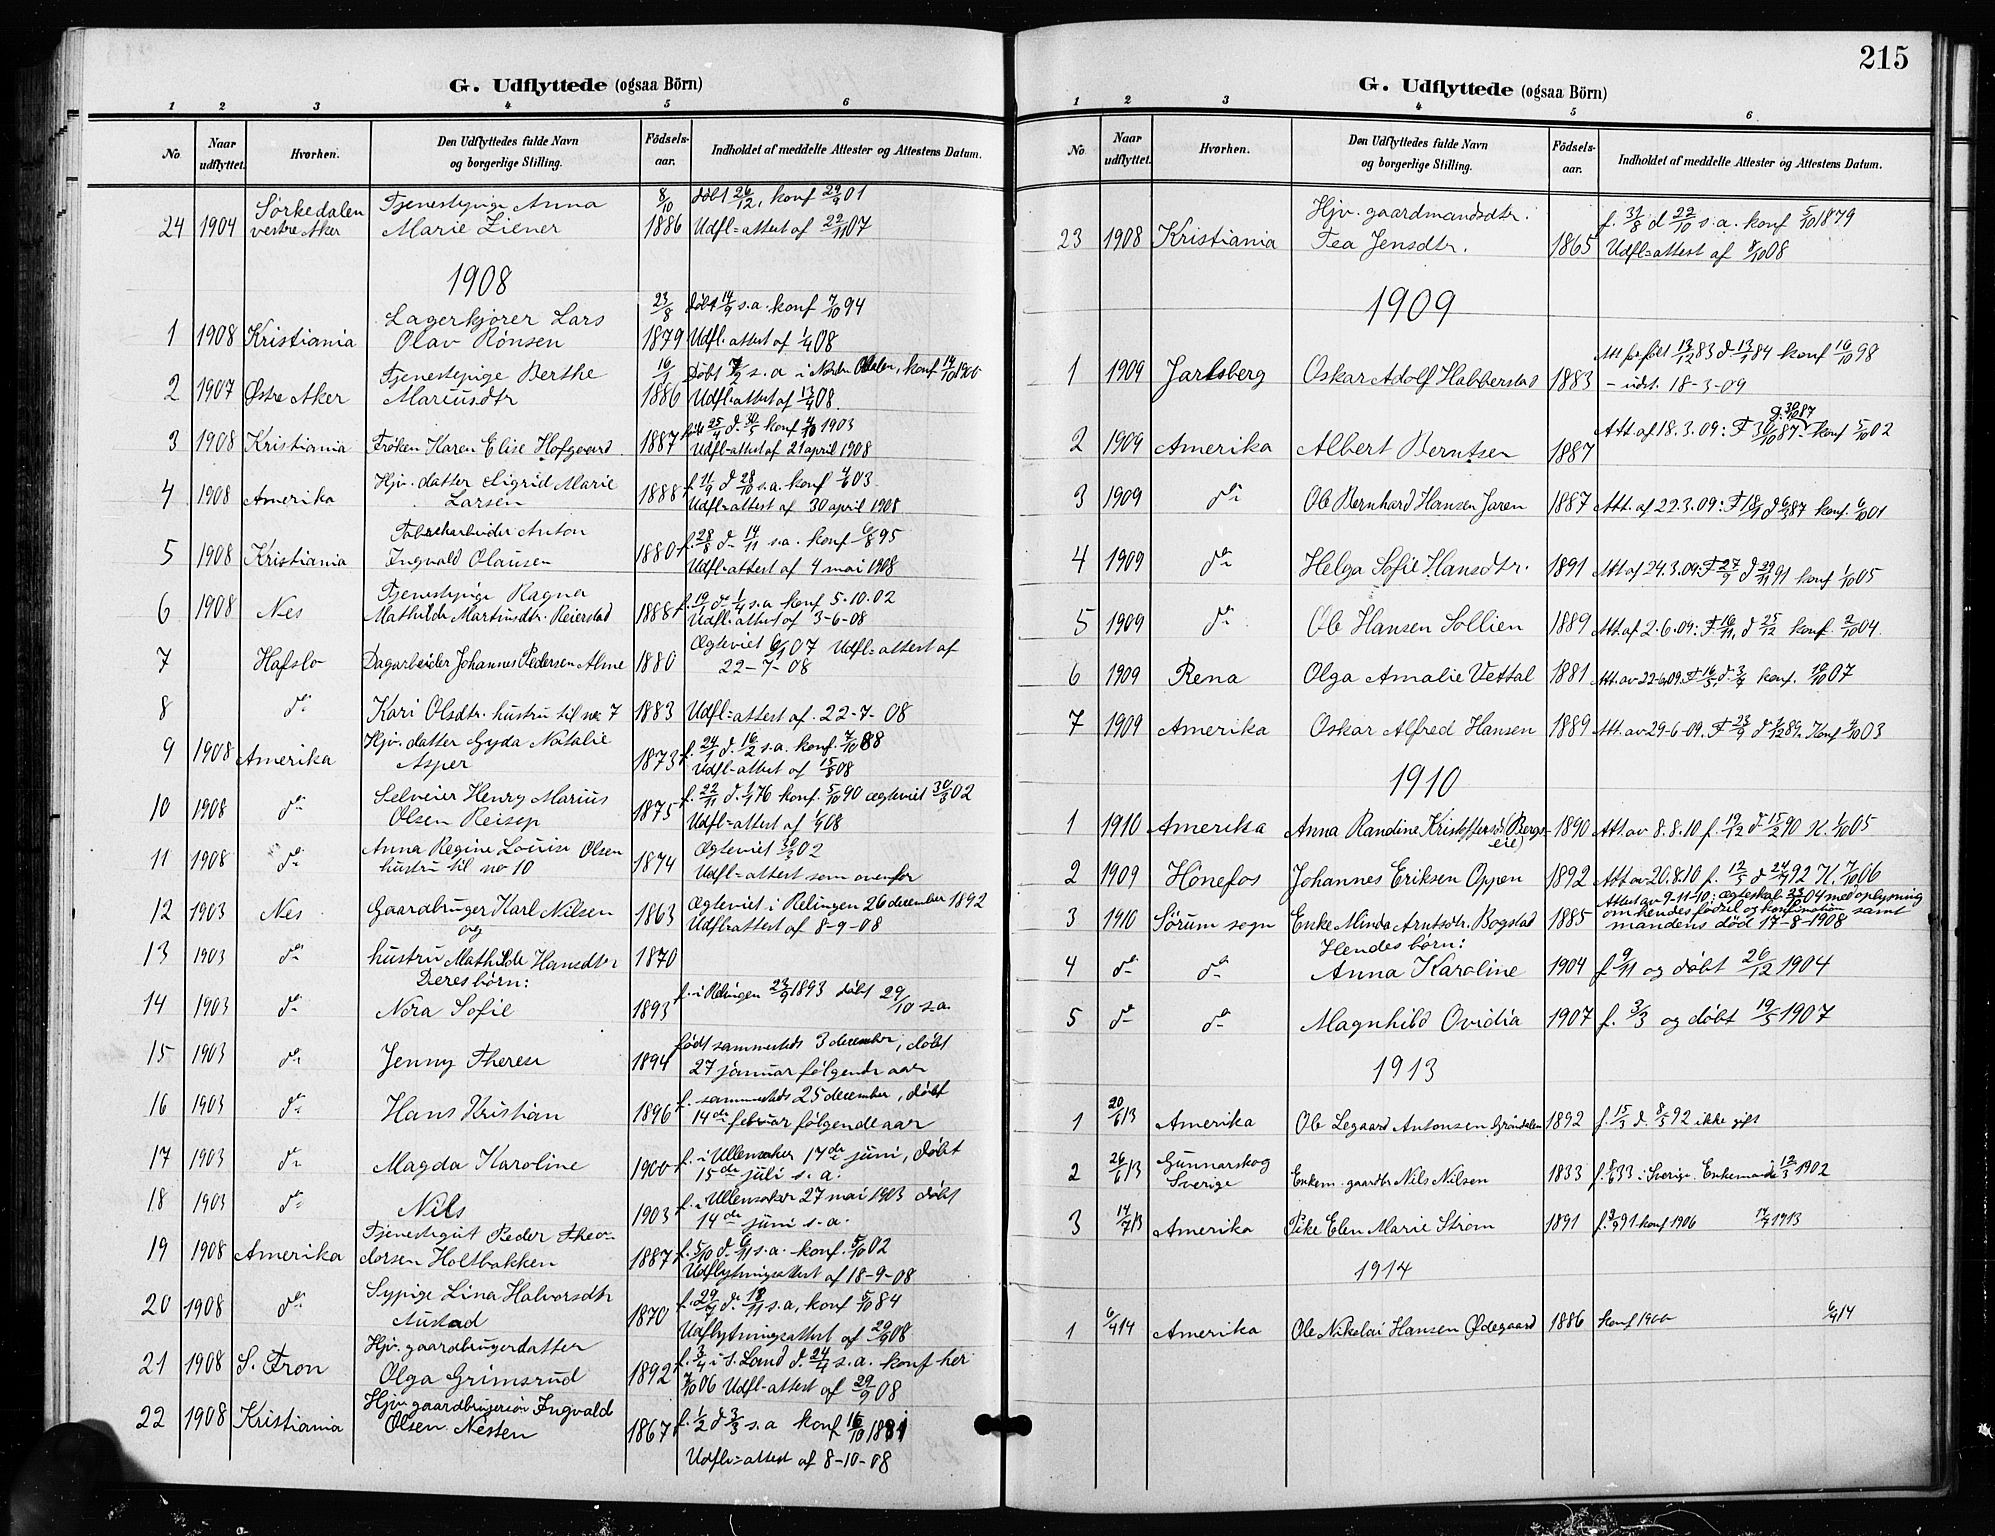 G. Udflyttede (ogsaa Börn)
1 2 3 4 5 6
No Naar udflyttet. Hvorhen. Den Udflyttedes fulde Navn og borgerlige Stilling. Födsels-aar. Indholdet af meddelte Attester og Attestens Datum.
Sørkedalen Tjenestepige Anna 8/10 døbt 26/12, konf 29/9 01
24 1904 vestre Aker Marie Liener 1886 Udfl=attest af 22/11 07
1908
Lagerkjører Lars 23/8 døbt 14/9 s.a. konf 7/10 94
1 1908 Kristiania Olav Rønsen 1879 Udfl=attest af 1/4 08
Tjenestepige Berthe 16/1 Døbt 7/2 s.a i Nordre Odalen, konf 14/10 1900
2 1907 Østre Aker Mariusdtr 1886 Udfl=attest af 13/4 08.
3 1908 Kristiania Frøken Karen Elise Hofgaard 1887 født 25/4 d. 30/5 konf 4/10 1903
Udfl=attest af 21 april 1908
Hjv. datter Sigrid Marie f. 11/9 d 28/10 s.a. konf 03
4 1908 Amerika Larsen 1888 Udfl=attest af 30 april 1908
Fabrikarbeider Anton f. 28/8 d 14/11 s.a. konf 95
5 1908 Kristiania Ingvald Olausen 1880 Udfl=attest af 4 mai 1908
Tjenestepige Ragna f. 19/1 d 1/4 s.a konf 5-10-02
6 1908 Nes Mathilde Martinsdtr. Reierstad 1888 Udfl=attest af 3-6-08
7 Hafslo Dagarbeider Johannes Pedersen Alme 1880 Ægteviet 07 Udfl=attest af
22-7-08
8 do Kari Olsdtr. hustru til no 7 1883 Udfl=attest af. 22-7-08
Hjv. datter Gyda Natalie f. 24/1 d. 16/2 s.a. konf. 7/10 88
9 1908 Amerika Asper 1873 Udfl=attest af 15/8 08
Selveier Henry Marius f. 22/11 d. 1/1 76 konf. 5/10 90 ægteviet 30/3 02
10 1908 do Olsen Reisep 1875 Udfl=attest af 1/9 08
Anna Regine Louise Olsen Ægteviet 30/3 02
11 1908 do hustru til no 10 1874 Udfl=attest som ovenfor
12 1903 Nes Gaardbruger Karl Nilsen 1863 Ægteviet i Relingen 26 december 1892
og Udfl=attest af 8-9-08
13 1903 do hustru Mathilde Hansdtr 1870
Deres børn:
14 1903 do Nora Sofie 1893 f. i Relingen 23/9 1893 døbt 29/10 s.a.
15 1903 do Jenny Therese 1894 født sammesteds 3 december, døbt
27 januar følgende aar
16 1903 do Hans Kristian 1896 f. sammesteds 25 december, døbt
14de februar følgende aar
17 1903 do Magda Karoline 1900 f. i Ullensaker 17de juni, døbt
15de juli s.a.
18 1903 do Nils 1903 f. i Ullensaker 27 mai 1903 døbt
14de juni s.a.
Tjenestegut Peder Theo-
19 1908 Amerika dorsen Holtbakken 1887 f. 5/10 d. 6/11 s.a. konf. 5/10 02
Udflytningsattest af 18-9-08
Sypige Lina Halvorsdtr f. 29/9 d. 18/11 s.a, konf 5/10 84
20 1908 do Austad 1870 Udflytningsattest af 29/9 08
Hjv. gaardbrugerdatter f. 3/4 i S. Land d. 24/4 s.a. konf her
21 1908 S. Fron Olga Grimsrud 1892 7/10 06 Udfl=attest af 29/9 08
Hjv gaardbrugersøn Ingvald f. 1/2 d 3/3 s.a konf 16/10 1881
22 1908 Kristiania Olsen Nesten 1867
Udfl=attest af 8-10-08
215
G. Udflyttede (ogsaa Börn)
1 2 3 4 5 6
No Naar udflyttet. Hvorhen. Den Udflyttedes fulde Navn og borgerlige Stilling. Födsels-aar. Indholdet af meddelte Attester og Attestens Datum.
Hjv. gaardmandsdtr. f. 31/8 d 22/10 s.a. konf 5/10 1879
23 1908 Kristiania Tea Jensdtr. 1865 Udfl=attest af 9/10 08
1909
1 1909 Jarlsberg Oskar Adolf Habberstad 1883 Att for født 13/12 83 d 13/1 84 konf 16/10 98
– udst. 18-3-09
d. 30/10 87
2 1909 Amerika Albert Berntsen 1887 Att af 18.3.09: F 87 konf 5/10 02
3 1909 do Ole Bernhard Hansen Jaren 1887 Att. af 22.3.09: F 18/1 d 6/3 87 konf. 6/10 01
4 1909 do Helga Sofie Hansdtr. 1891 Att af 24.3.09: F 27/9 d 29/11 91 konf 1/10 05
5 1909 do Ole Hansen Sollien 1889 Att. af 2.6.09: F. 16/11, d 25/12 konf. 2/10 04.
6 1909 Rena Olga Amalie Vettal 1881 Att. av 22-6-09. F 16/3 d. 3/4 konf. 07
7 1909 Amerika Oskar Alfred Hansen 1889 Att. av 29-6-09. F 23/9 d 89 Konf 4/10 03
1910
1 1910 Amerika Anna Randine Kristoffersd. (Bergs- 1890 Att. av 8.8.10 f. 19/12 d 15/2 90 K. 1/10 05
eie)
2 1909 Hönefos Johannes Eriksen Oppen 1892 Att av 20.8.10 f. 12/3 d 24/4 92 K. 7/10 06
Attest av 9-11-10: ægteskab 23/10 04 med oplysning
3 1910 Sørum sogn Enke Minda Arntsdtr. Bogstad 1885 om hendes fødsel og konfirmation samt
Hendes børn: mandens død 17-8-1908
4 do do Anna Karoline 1904 f 9/11 og døbt 26/12 1904
5 do do Magnhild Ovidia 1907 f. 3/3 og døbt 19/5 1907
1913
1 20/6 13 Amerika Ole Legaard Antonsen Gröndalen 1892 f. 15/3 d. 8/5 92 ikke gift
2 26/6 13 Gunnarskog Sverige Enkem. gaardbr Nils Nilsen 1833 f. 8/6 33 i Sverige. Enkemand 12/3 1902
3 14/7 13 Amerika Pike Elen Marie Strøm 1891 f. 2/9 91 konf 1906 14/7 1913
1914
1 6/4 14 Amerika Ole Nikolai Hansen Ødegaard 1886 konf 1900 6/4 14